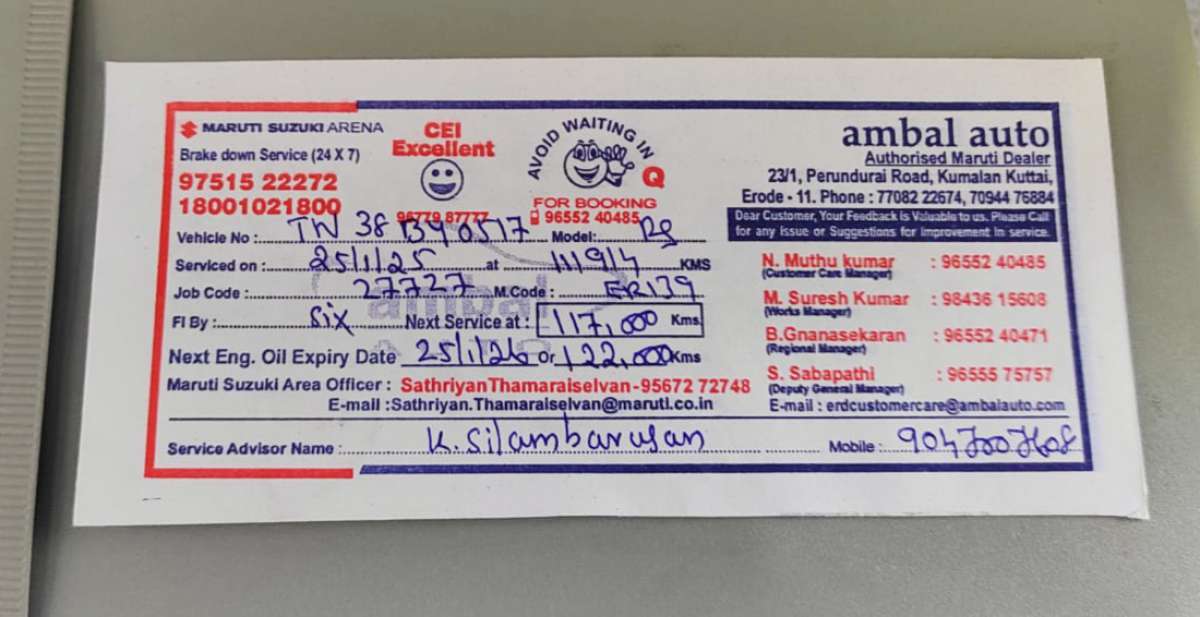 MARUTI SUZUKI ARENA
Brake down Service (24 X 7)
97515 22272
18001021800
CEI
Excellent
96779 87777
AVOID WAITING IN Q
FOR BOOKING
96552 40485
ambal auto
Authorised Maruti Dealer
23/1, Perundurai Road, Kumalan Kuttai,
Erode - 11. Phone : 77082 22674, 70944 75884
Dear Customer, Your Feedback is Valuable to us. Please Call
for any issue or Suggestions for improvement in service.
Vehicle No : TN 38 0517 Model:
Serviced on : 25/1/25 at 111914 KMS
Job Code : 27727 M.Code : ER139
FI By : Six Next Service at : 117,000 Kms
Next Eng. Oil Expiry Date 25/1/26 or 122,000 Kms
Maruti Suzuki Area Officer : Sathriyan Thamaraiselvan - 95672 72748
E-mail :Sathriyan.Thamaraiselvan@maruti.co.in
N. Muthu kumar : 96552 40485
(Customer Care Manager)
M. Suresh Kumar : 98436 15608
(Works Manager)
B.Gnanasekaran : 96552 40471
(Regional Manager)
S. Sabapathi : 96555 75757
(Deputy General Manager)
E-mail : erdcustomercare@ambalauto.com
Service Advisor Name : K. Silambarasan Mobile :
ambal